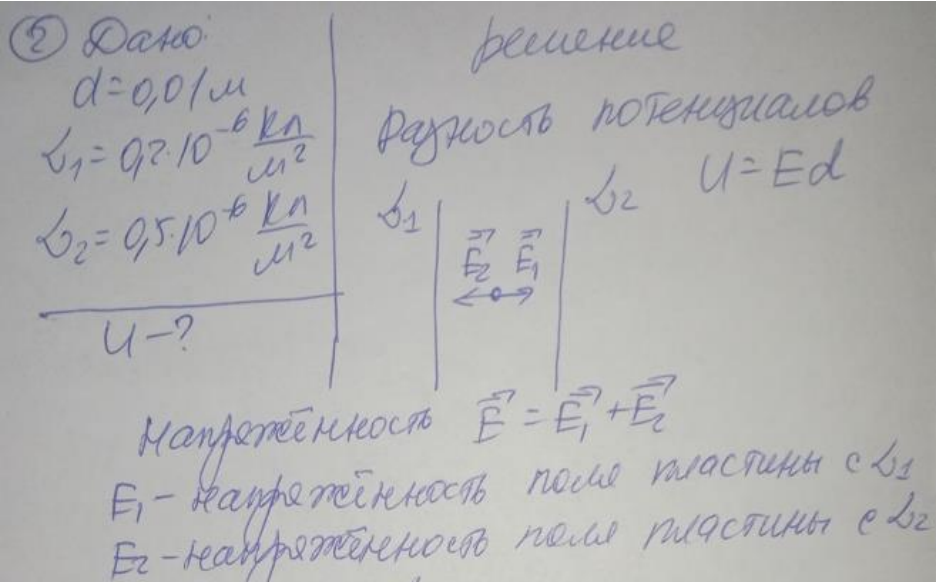 ② Дано:
d=0,01м
σ₁=0,2·10⁻⁶ Кл/м²
σ₂=0,5·10⁻⁶ Кл/м²
U-?
решение
Разность потенциалов
U=Ed
σ₁ σ₂
E₂⃗ E₁⃗
Напряжённость E⃗ = E₁⃗ + E₂⃗
E₁ - напряжённость поля пластины с σ₁
E₂ - напряжённость поля пластины с σ₂